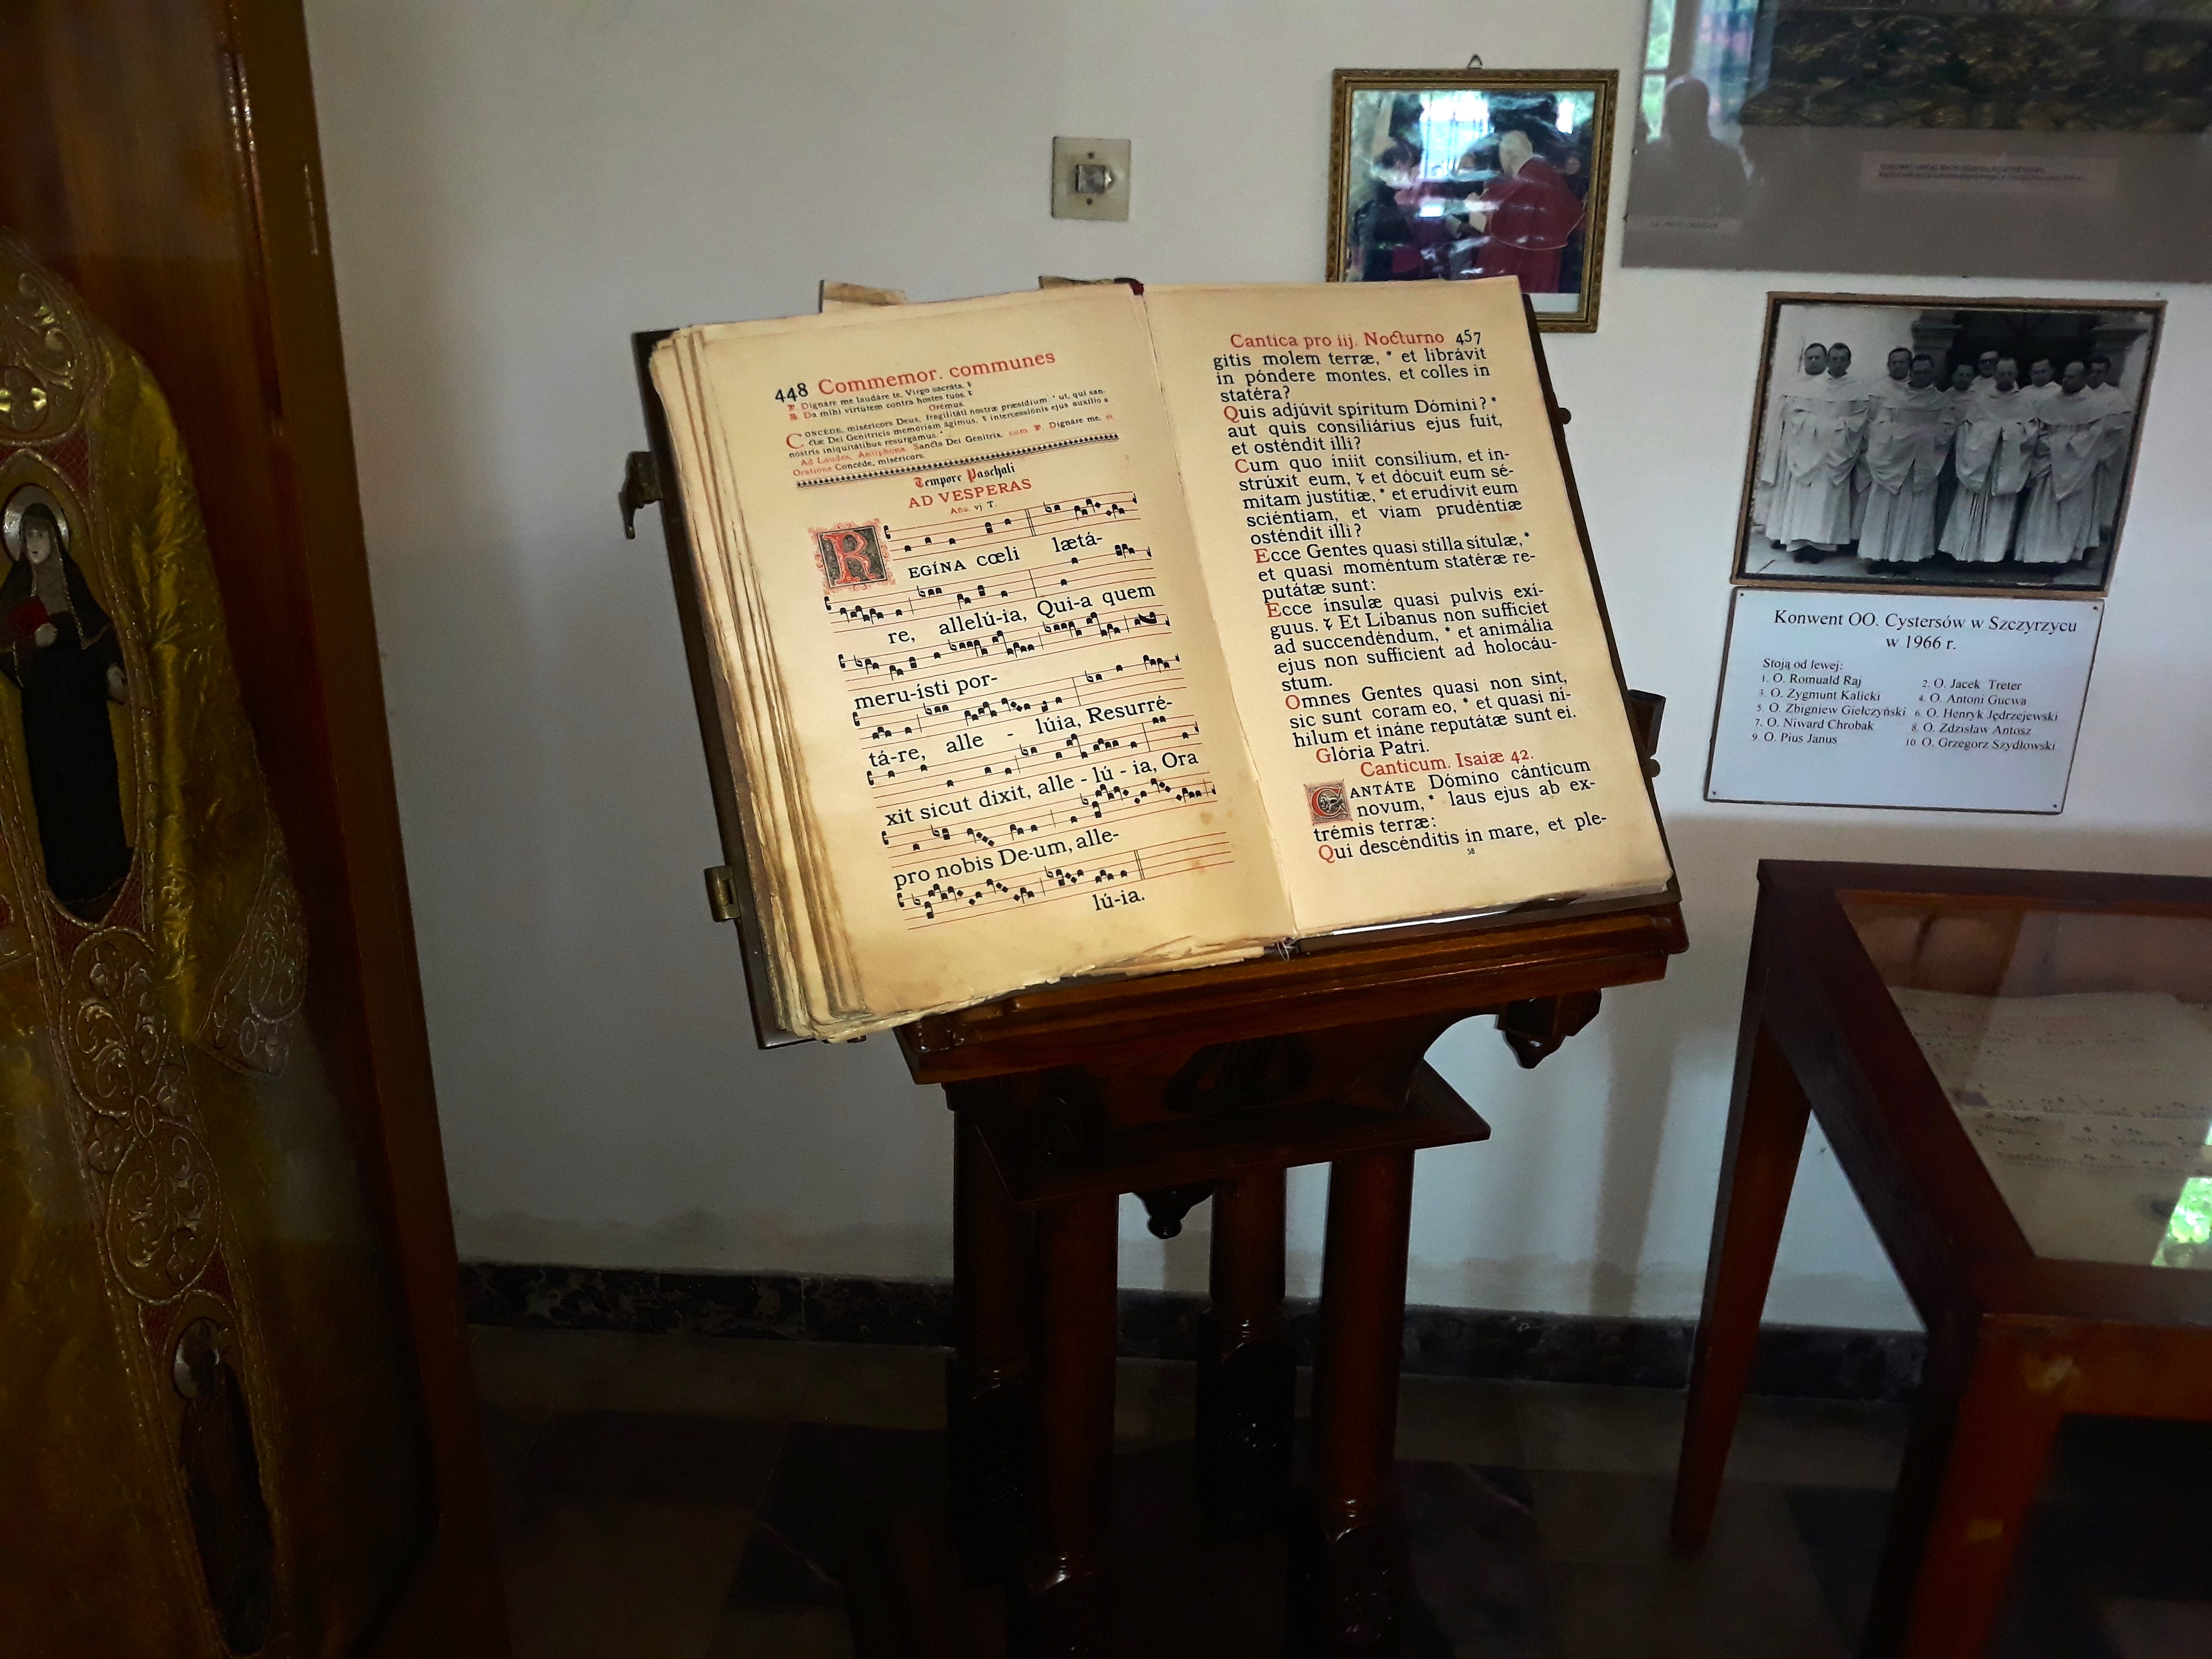 448 Commemor. communes
℣. Dignáre me laudáre te, Virgo sacráta. ⁊
℟. Da mihi virtútem contra hostes tuos. ⁊
Orémus.
CONCÉDE, miséricors Deus, fragilitáti nostræ præsídium * ut, qui san-
ctæ Dei Genitrícis memóriam ágimus, ⁊ intercessiónis ejus auxílio a
nostris iniquitátibus resurgámus.
Ad Laudes, Antiphona. Sancta Dei Genitrix. cum ℣. Dignáre me. et
Oratione Concéde, miséricors.
Tempore Paschali
AD VESPERAS
Aña. vj T.
REGÍNA cœli lætá-
re, allelú-ia, Qui-a quem
meru-ísti por-
tá-re, alle - lúia, Resurré-
xit sicut dixit, alle - lú - ia, Ora
pro nobis De-um, alle-
lú-ia.
Cantica pro iij. Nocturno 457
gitis molem terræ, * et librávit
in póndere montes, et colles in
statéra?
Quis adjúvit spíritum Dómini? *
aut quis consiliárius ejus fuit,
et osténdit illi?
Cum quo íniit consílium, et in-
strúxit eum, ⁊ et dócuit eum sé-
mitam justítiæ, * et erudívit eum
sciéntiam, et viam prudéntiæ
osténdit illi?
Ecce Gentes quasi stilla sítulæ, *
et quasi moméntum statéræ re-
putátæ sunt:
Ecce ínsulæ quasi pulvis exí-
guus. ⁊ Et Líbanus non sufficiet
ad succendéndum, * et animália
ejus non sufficient ad holocáu-
stum.
Omnes Gentes quasi non sint,
sic sunt coram eo, * et quasi ní-
hilum et ináne reputátæ sunt ei.
Glória Patri.
Canticum. Isaiæ 42.
CANTÁTE Dómino cánticum
novum, * laus ejus ab ex-
trémis terræ:
Qui descénditis in mare, et ple-
58
Konwent OO. Cystersów w Szczyrzycu
w 1966 r.
Stoją od lewej:
1. O. Romuald Raj 2. O. Jacek Treter
3. O. Zygmunt Kalicki 4. O. Antoni Gucwa
5. O. Zbigniew Giełczyński 6. O. Henryk Jędrzejewski
7. O. Niward Chrobak 8. O. Zdzisław Antosz
9. O. Pius Janus 10. O. Grzegorz Szydłowski